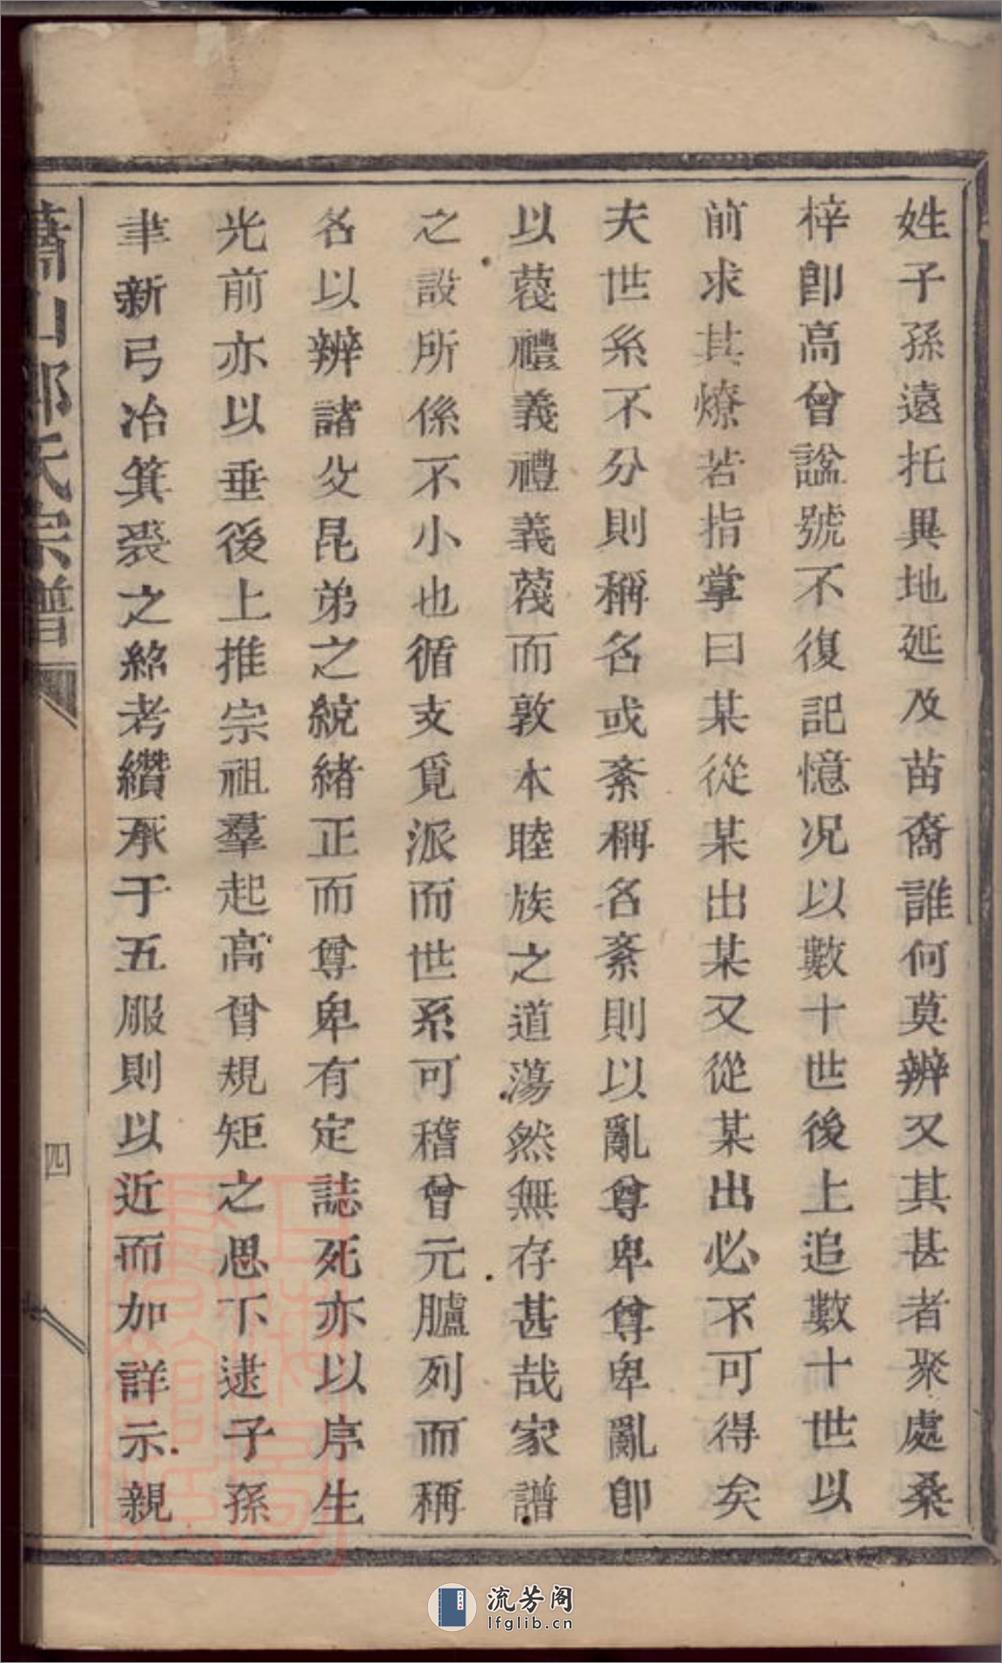 姓子孫遠托異地延及苗裔誰何莫辨又其甚者聚處桑
梓卽高曾諡號不復記憶况以數十世後上追數十世以
前求其燎若指掌曰某從某出某又從某出必不可得矣
夫世系不分則稱名或紊稱名紊則以亂尊卑尊卑亂卽
以蔑禮義禮義蔑而敦本睦族之道蕩然無存甚哉家譜
之設所係不小也循支覓派而世系可稽曾元臚列而稱
名以辨諸父昆弟之統緒正而尊卑有定誌死亦以序生
光前亦以垂後上推宗祖羣起高曾規矩之思下逮子孫
聿新弓冶箕裘之紹考纘承于五服則以近而加詳示親
蕭山郎氏宗譜
四
流芳阁
lfglib.cn